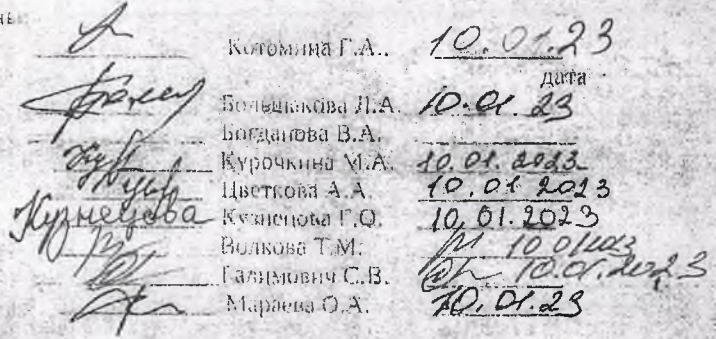 Котомина Г.А. 10.01.23
дата
Большакова Л.А. 10.01.23
Богданова В.А.
Курочкина М.А. 10.01.2023
Цветкова А.А. 10.01.2023
Кузнецова Кузнецова Г.О. 10.01.2023
Волкова Т.М. 10.01.2023
Галимович С.В. 10.01.2023
Мараева О.А. 10.01.23